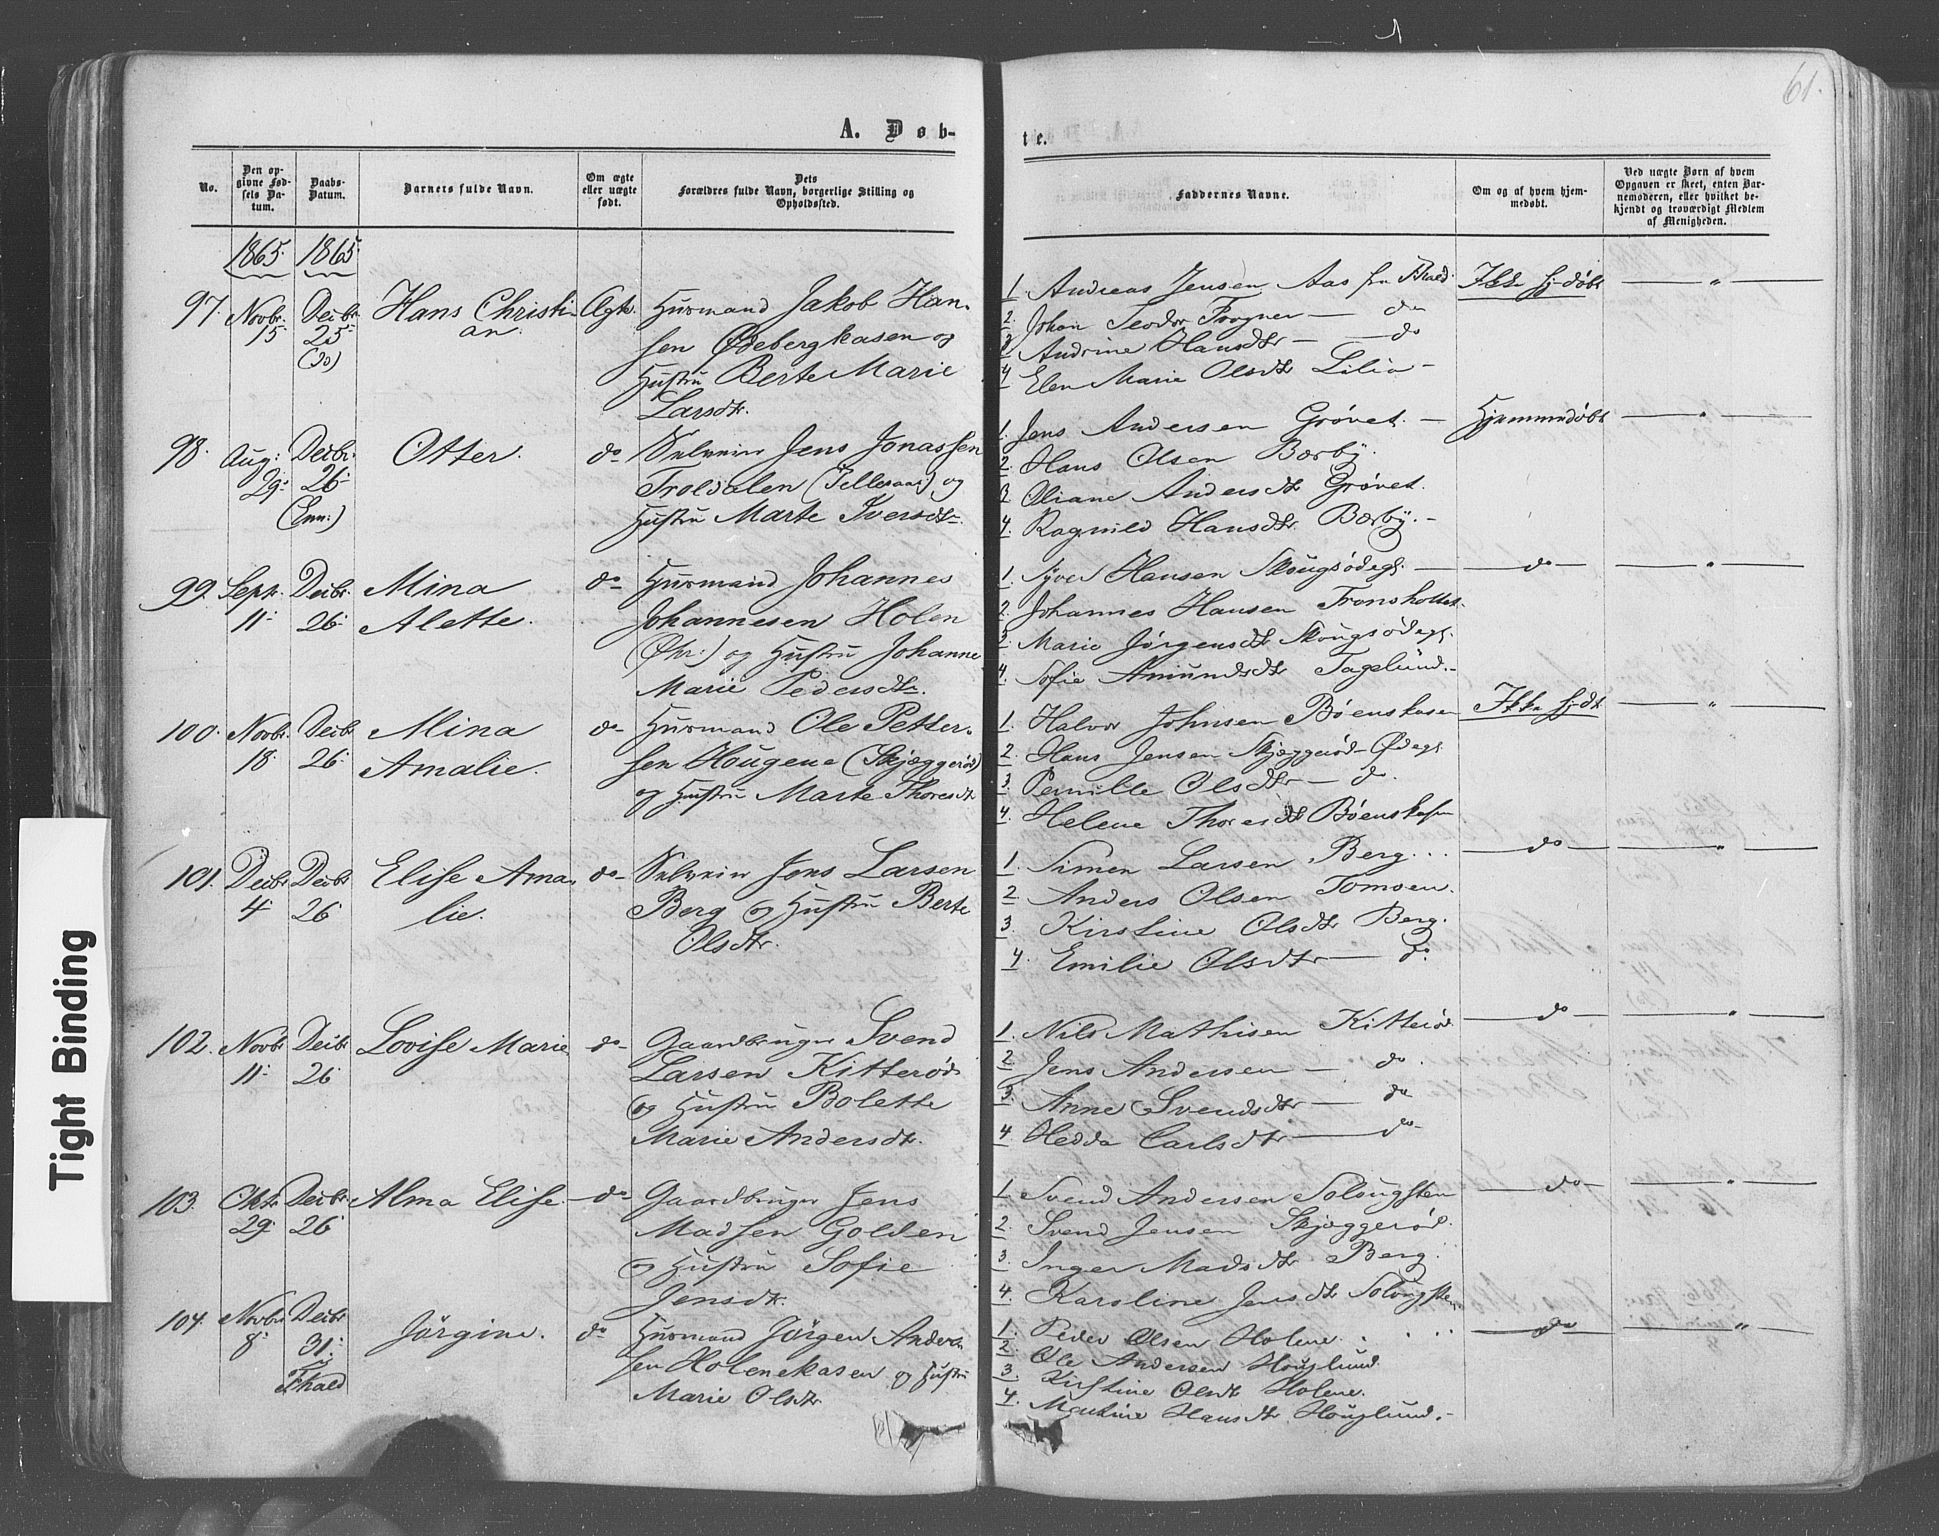 61.
A. Døb-
te.
No.
Den op-
givne Fød-
sels Da-
tum.
Daabs-
Datum.
Barnets fulde Navn.
Om ægte
eller uægte
født.
Dets
Forældres fulde Navn, borgerlige Stilling og
Opholdssted.
Faddernes Navne.
Om og af hvem hjem-
medøbt.
Ved uægte Børn af hvem
Opgaven er skeet, enten Bar-
nemoderen, eller hvilket be-
kjendt og troværdigt Medlem
af Menigheden.
1865. 1865.
97. Novbr. 15 Decbr. 25 Hans Christi-
an.
Ægte.
Husmand Jakob Han-
sen Ødebergkasen og
Hustru Berte Marie
Larsdtr.
1. Andreas Jensen Aas fra
2. Johan Teodor Frogner — do
3. Andrine Hansdtr — do
4. Elen Marie Olsdtr Lilio —
Ikke hj-døbt — " —
98. Aug: 29. Decbr. 26 Otter.
do
Selveier Jens Jonassen
Troldalen (Jelleraas) og
Hustru Marte Iversdtr.
1. Jens Andersen Grøvet. —
2. Hans Olsen Bærby.
3. Oliane Andersdtr Grøvet.
4. Ragnild Hansdtr Bærby. —
Hjemmedøbt — " —
99. Septr. 11. Decbr. 26 Mina
Alette.
do
Husmand Johannes
Johannesen Holen
og Hustru Johanne
Marie Pedersdtr.
1. Syver Hansen Skougsødeg. —
2. Johannes Hansen
3. Marie Jørgensdtr Skougsødeg.
4. Sofie Amundsdtr
do — " —
100. Novbr. 18. Decbr. 26 Mina
Amalie.
do
Husmand Ole Petter-
sen Hougene (Skjæggerød)
og Hustru Marte Thoresdtr
1. Halvor Johnsen Bøenskasen
2. Hans Jensen Skjæggerød-Ødeg.
3. Pernille Olsdtr — do.
4. Helene Thoresdtr Bøenskasen
Ikke hj-dt — " —
101. Decbr 4. Decbr 26 Elise Ama-
lie.
do
Selveier Jens Larsen
Berg og Hustru Berte
Olsdtr.
1. Simen Larsen Berg...
2. Anders Olsen Tomsen.
3. Kirstine Olsdtr Berg.
4. Emilie Olsdtr — do.
do — " —
102. Novbr 11. Decbr 26 Lovise Marie
do
Gaardbruger Svend
Larsen Kitterød
og Hustru Bolette
Marie Andersdtr.
1. Nils Mathisen Kitterød
2. Jens Andersen — do.
3. Anne Svendsdtr — do
4. Hedda Carlsdtr — do
do — " —
103. Oktr. 29. Decbr. 26 Alma Elise.
do
Gaardbruger Jens
Madsen Golden
og Hustru Sofie
Jensdtr.
1. Svend Andersen Solougsten
2. Svend Jensen Skjæggerød.
3. Inger Madsdtr Berg.
4. Karoline Jensdtr Solougsten
do — " —
104. Novbr 8. Decbr 31. Jörgine.
do
Husmand Jørgen Ander-
sen Holenekasen og Hustru
Marie Olsdtr.
1. Peder Olsen Holene.
2. Ole Andersen Houglund
3. Kirstine Olsdt Holene.
4. Martine Hansdtr Houglund. —
do — " —
Tight Binding